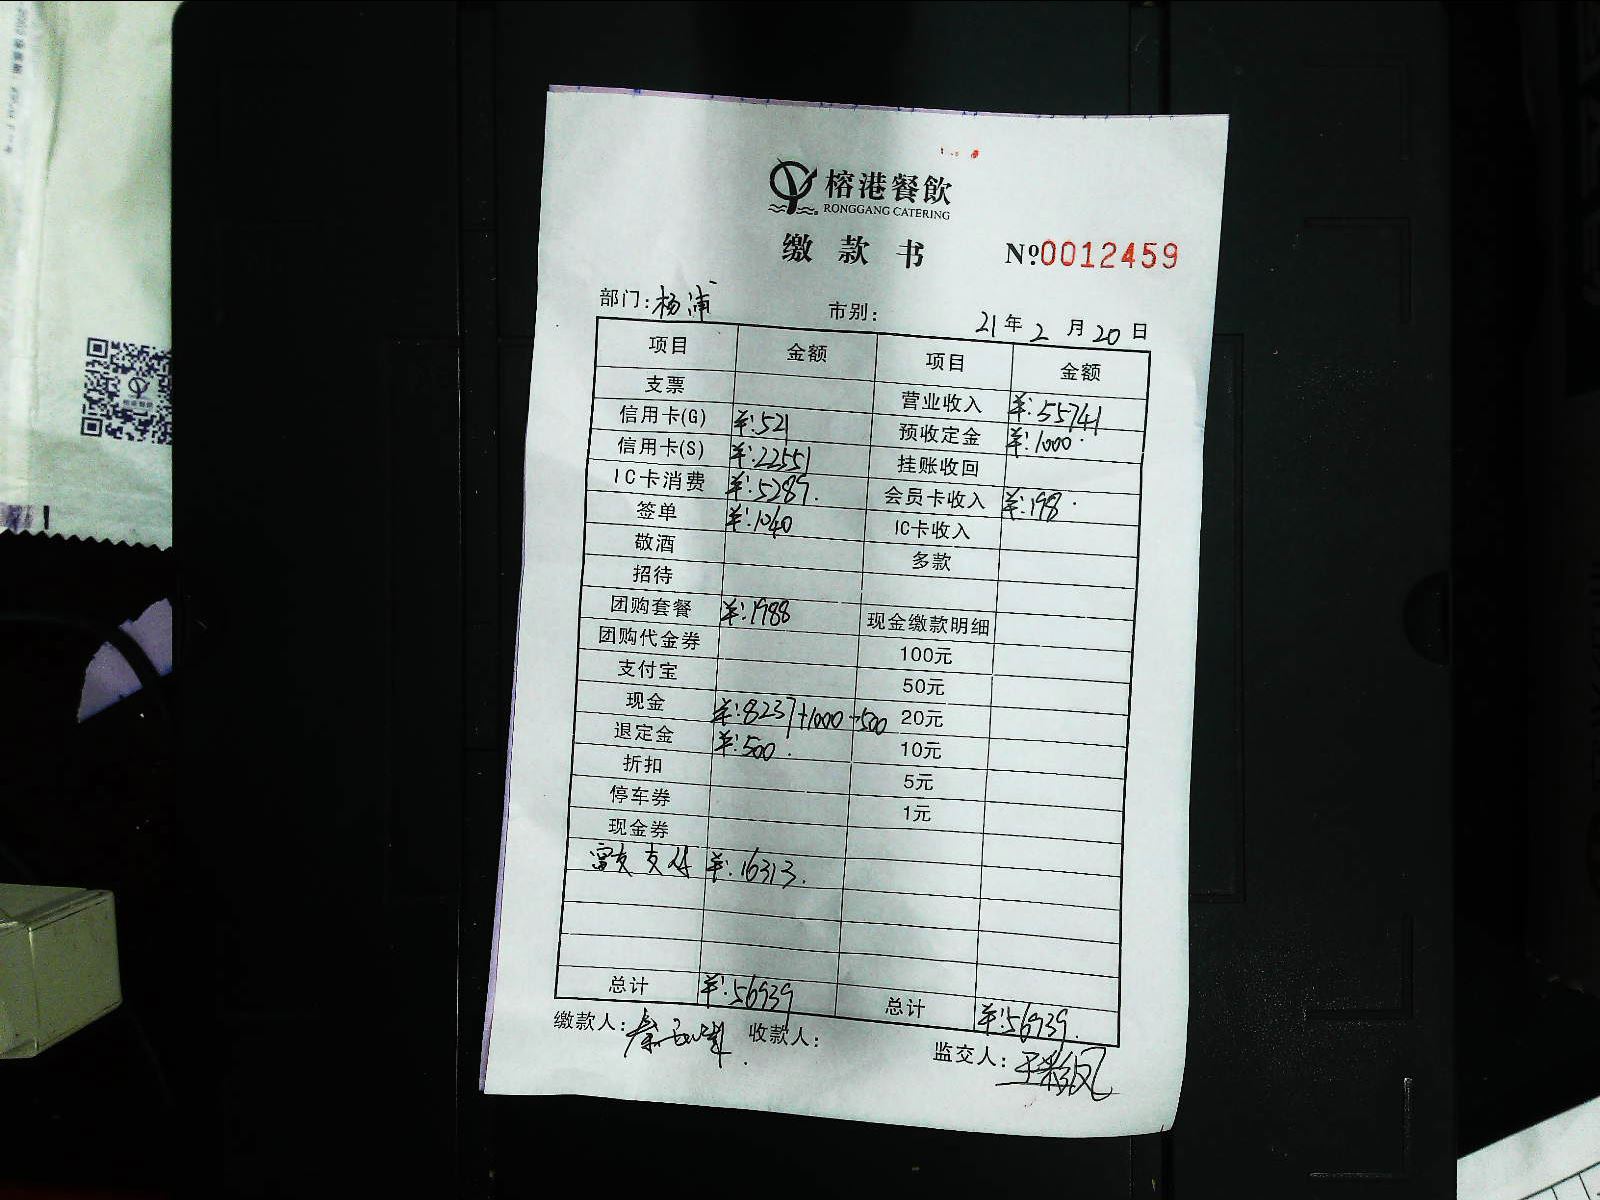 榕港餐飲
RONGGANG CATERING
缴款书 №0012459
部门:杨浦 市别: 21年2月20日
项目 金额 项目 金额
支票 营业收入 ¥:55741
信用卡(G) ¥:521 预收定金 ¥:1000
信用卡(S) ¥:22551 挂账收回
IC卡消费 ¥:5289. 会员卡收入 ¥:198
签单 ¥:1040 IC卡收入
敬酒 多款
招待
团购套餐 ¥:1988 现金缴款明细
团购代金券 100元
支付宝 50元
现金 ¥:8237+1000-500 20元
退定金 ¥:500. 10元
折扣 5元
停车券 1元
现金券
富友支付 ¥:16313.
总计 ¥:56939 总计 ¥:56939.
缴款人: 收款人: 监交人:王彩凤